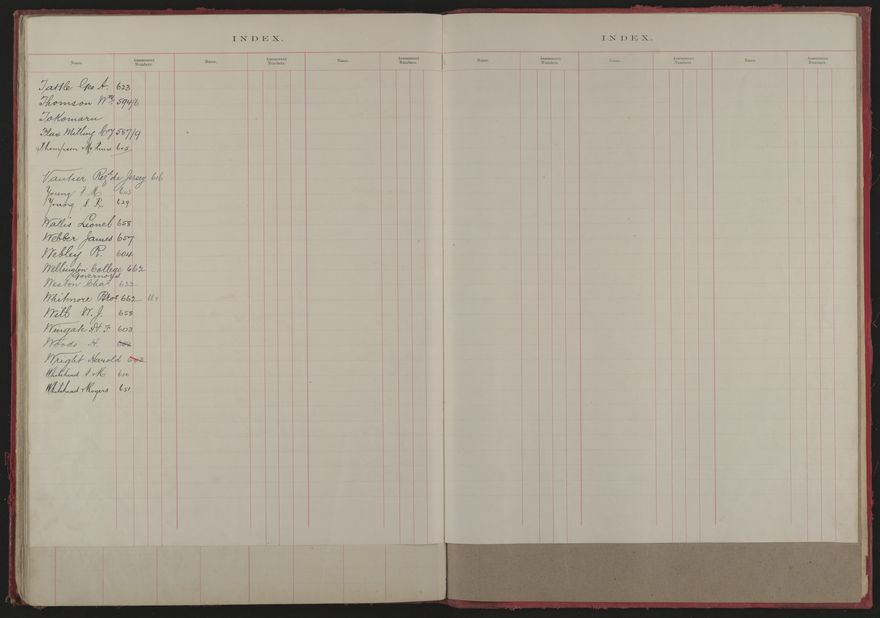 INDEX.
Name. Assessment Numbers. Name. Assessment Numbers. Name. Assessment Numbers.
Tattle Geo A. 623
Thomson Wm. 594/6
Tokomaru
Flax Milling Coy 587/9
Thompson
Vautier Regd de Jersey 616
Young
Young S R. 629
Wallis Lionel 658
Webber James 657
Webley R. 604
Wellington College 662
Governors
Weston Chas 622
Whitmore Bros 662
W. J. 658
Wingate H. F. 603
Woods H. 602
Wright Harold 602
Whitehead
Whitehead & Rogers 651
INDEX.
Name. Assessment Numbers. Name. Assessment Numbers. Name. Assessment Numbers.